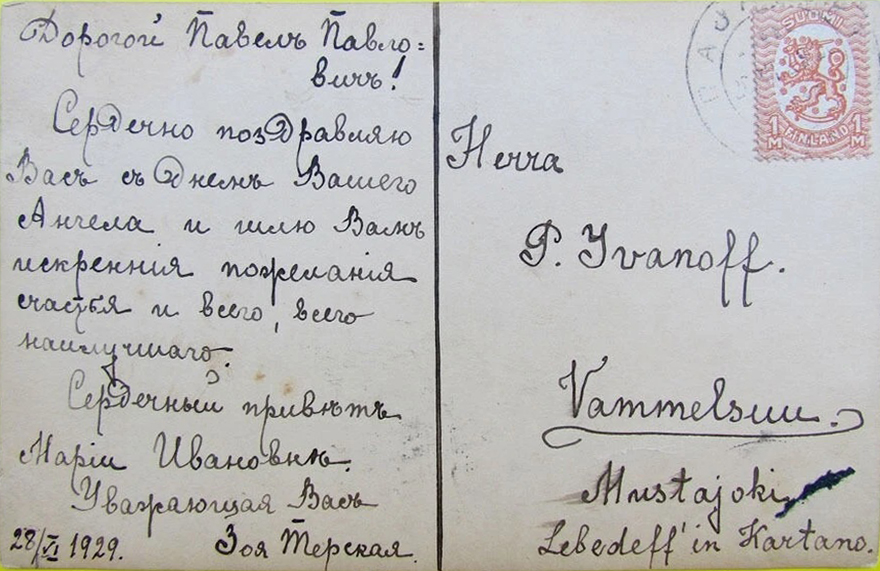 Дорогой Павелъ Павло=
вичъ!
Сердечно поздравляю
Васъ съ Днемъ Вашего
Ангела и шлю Вамъ
искреннія пожеланія
счастья и всего, всего
наилучшаго.
Сердечный привѣтъ
Маріи Ивановнѣ.
Уважающая Васъ
28/VI 1929. Зоя Терская.
SUOMI
1 M FINLAND 1 M
Herra
P. Ivanoff.
Vammelsuu.
Mustajoki
Lebedeff'in Kartano.